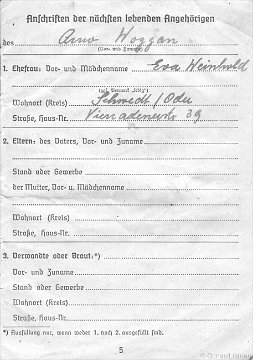 Anschriften der nächsten lebenden Angehörigen
des Arno Woggan
(Vor- und Zuname)
1. Ehefrau: Vor- und Mädchenname Eva Weinhold
(ggf. Vermerk „ledig")
Wohnort (Kreis) Schwedt/Oder
Straße, Haus-Nr. Vierradenerstr. 39
2. Eltern: des Vaters, Vor- und Zuname
Stand oder Gewerbe
der Mutter, Vor- u. Mädchenname
Wohnort (Kreis)
Straße, Haus-Nr.
3. Verwandte oder Braut:*)
Vor- und Zuname
Stand oder Gewerbe
Wohnort (Kreis)
Straße, Haus-Nr.
*) Ausfüllung nur, wenn weder 1. noch 2. ausgefüllt sind.
5